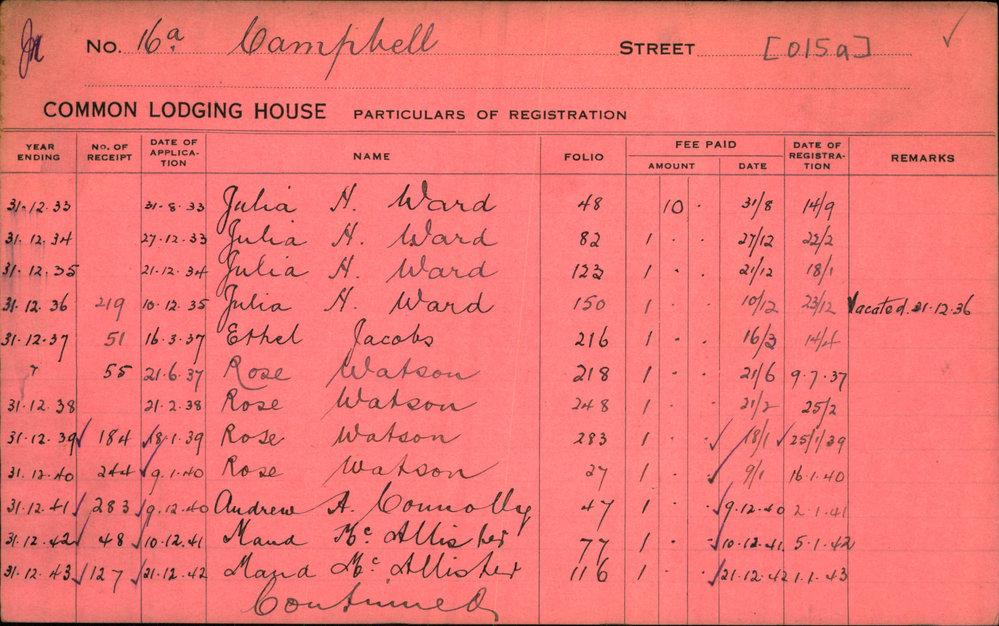 No. 16a Campbell STREET [015a]
COMMON LODGING HOUSE PARTICULARS OF REGISTRATION
YEAR ENDING NO. OF RECEIPT DATE OF APPLICA-TION NAME FOLIO FEE PAID AMOUNT DATE DATE OF REGISTRA-TION REMARKS
31.12.33 31.8.33 Julia H. Ward 48 10 . 31/8 14/9
31.12.34 27.12.33 Julia H. Ward 82 1 . . 27/12 22/2
31.12.35 21.12.34 Julia H. Ward 123 1 . . 21/12 18/1
31.12.36 219 10.12.35 Julia H. Ward 150 1 . . 10/12 23/12 Vacated 31.12.36
31.12.37 51 16.3.37 Ethel Jacobs 216 1 . . 16/3 14/4
" 55 21.6.37 Rose Watson 218 1 . . 21/6 9.7.37
31.12.38 21.2.38 Rose Watson 248 1 . . 21/2 25/2
31.12.39 184 18.1.39 Rose Watson 283 1 . . 18/1 25/1/39
31.12.40 244 9.1.40 Rose Watson 27 1 . . 9/1 16.1.40
31.12.41 283 9.12.40 Andrew A. Connolly 47 1 . . 9.12.40 2.1.41
31.12.42 48 10.12.41 Maud McAllister 77 1 . . 10.12.41 5.1.42
31.12.43 127 21.12.42 Maud McAllister 116 1 . . 21.12.42 1.1.43
Continued